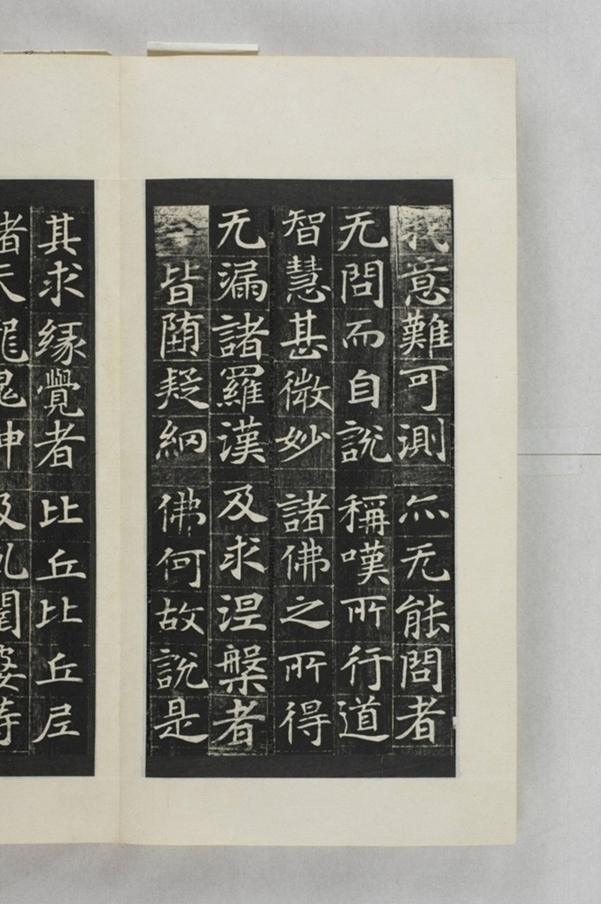 我意難可測亦无能問者
无問而自説稱嘆所行道
智慧甚微妙諸佛之所得
无漏諸羅漢及求涅槃者
今皆墮疑網佛何故説是
其求緣覺者比丘比丘尼
諸天龍鬼神及乹闥婆等